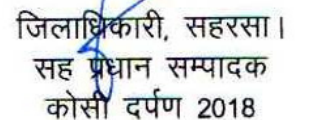 जिलाधिकारी, सहरसा।
सह प्रधान सम्पादक
कोसी दर्पण 2018